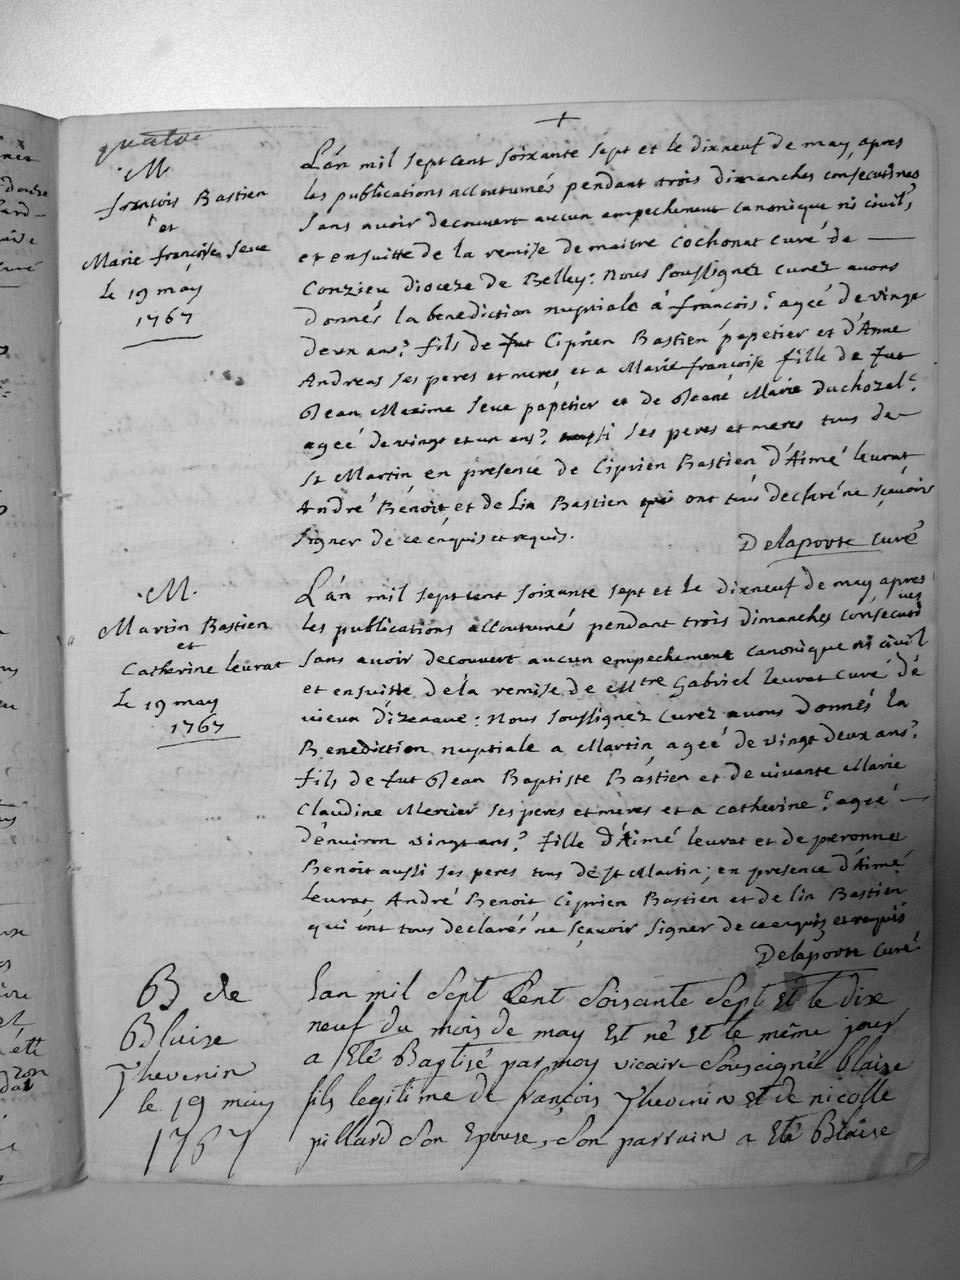 quatre
M.
françois Bastien
et
Marie françoise Seve
le 19 may
1767
L'an mil sept cent soixante sept et le dixneuf de may, apres
les publications accoutumés pendant trois dimanches consecutives
sans avoir decouvert aucun empechement canonique ni civil,
et ensuitte de la remise de maitre Cochonat curé de
Conzieu diocese de Belley: Nous soussignez curez avons
donnés la benediction nuptiale à françois, ageé de vingt
deux ans, fils de fut Ciprien Bastien papetier et d'Anne
Andreas ses peres et meres, et a Marie françoise fille de fut
Jean Maxime Seve papetier et de Jeane Marie Duchozel,
ageé de vingt et un ans, ses peres et meres tous de
St Martin en presence de Ciprien Bastien d'Aimé leurat
André Benoit, et de Lin Bastien qui ont tous declaré ne sçavoir
signer de ce enquis et requis.
Delaporte curé
M.
Martin Bastien
et
Catherine leurat
Le 19 may
1767
L'an mil sept cent soixante sept et le dixneuf de may apres
les publications accoutumé pendant trois dimanches consecuti
ves
sans avoir decouvert aucun empechement canonique ni civil
et ensuitte de la remise de Mtre Gabriel leurat curé de
vieux d'izenave: Nous soussignez curez avons donnés la
Benediction nuptiale a Martin ageé de vingt deux ans,
fils de fut Jean Baptiste Bastien et de vivante Marie
Claudine Mercier ses peres et meres et a catherine, ageé
d'environ vingt ans, fille d'Aimé leurat et de peronne
Benoit aussi ses peres tous de St Martin; en presence d'Aimé
leurat, André Benoit Ciprien Bastien et de lin Bastien
qui ont tous declarés ne sçavoir signer de ce enquis et requis
Delaporte curé
B de
Blaise
Thevenin
le 19 may
1767
Lan mil Sept Cent Soisante Sept Et le dixe
neuf du mois de may Est né Et le même jour
a Eté Baptisé par moy vicaire Sousigné Blaise
fils legitime de françois Thevenin Et de nicolle
pillard Son Epouse, Son parrain a Eté Blaise